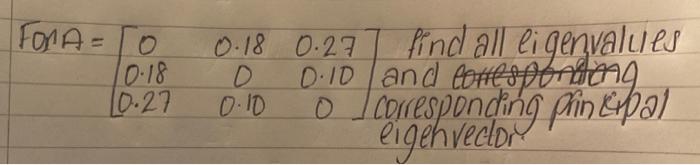 For A = [0 0.18 0.27] find all eigenvalues
[0.18 0 0.10] and corresponding
[0.27 0.10 0] corresponding principal
eigenvector.